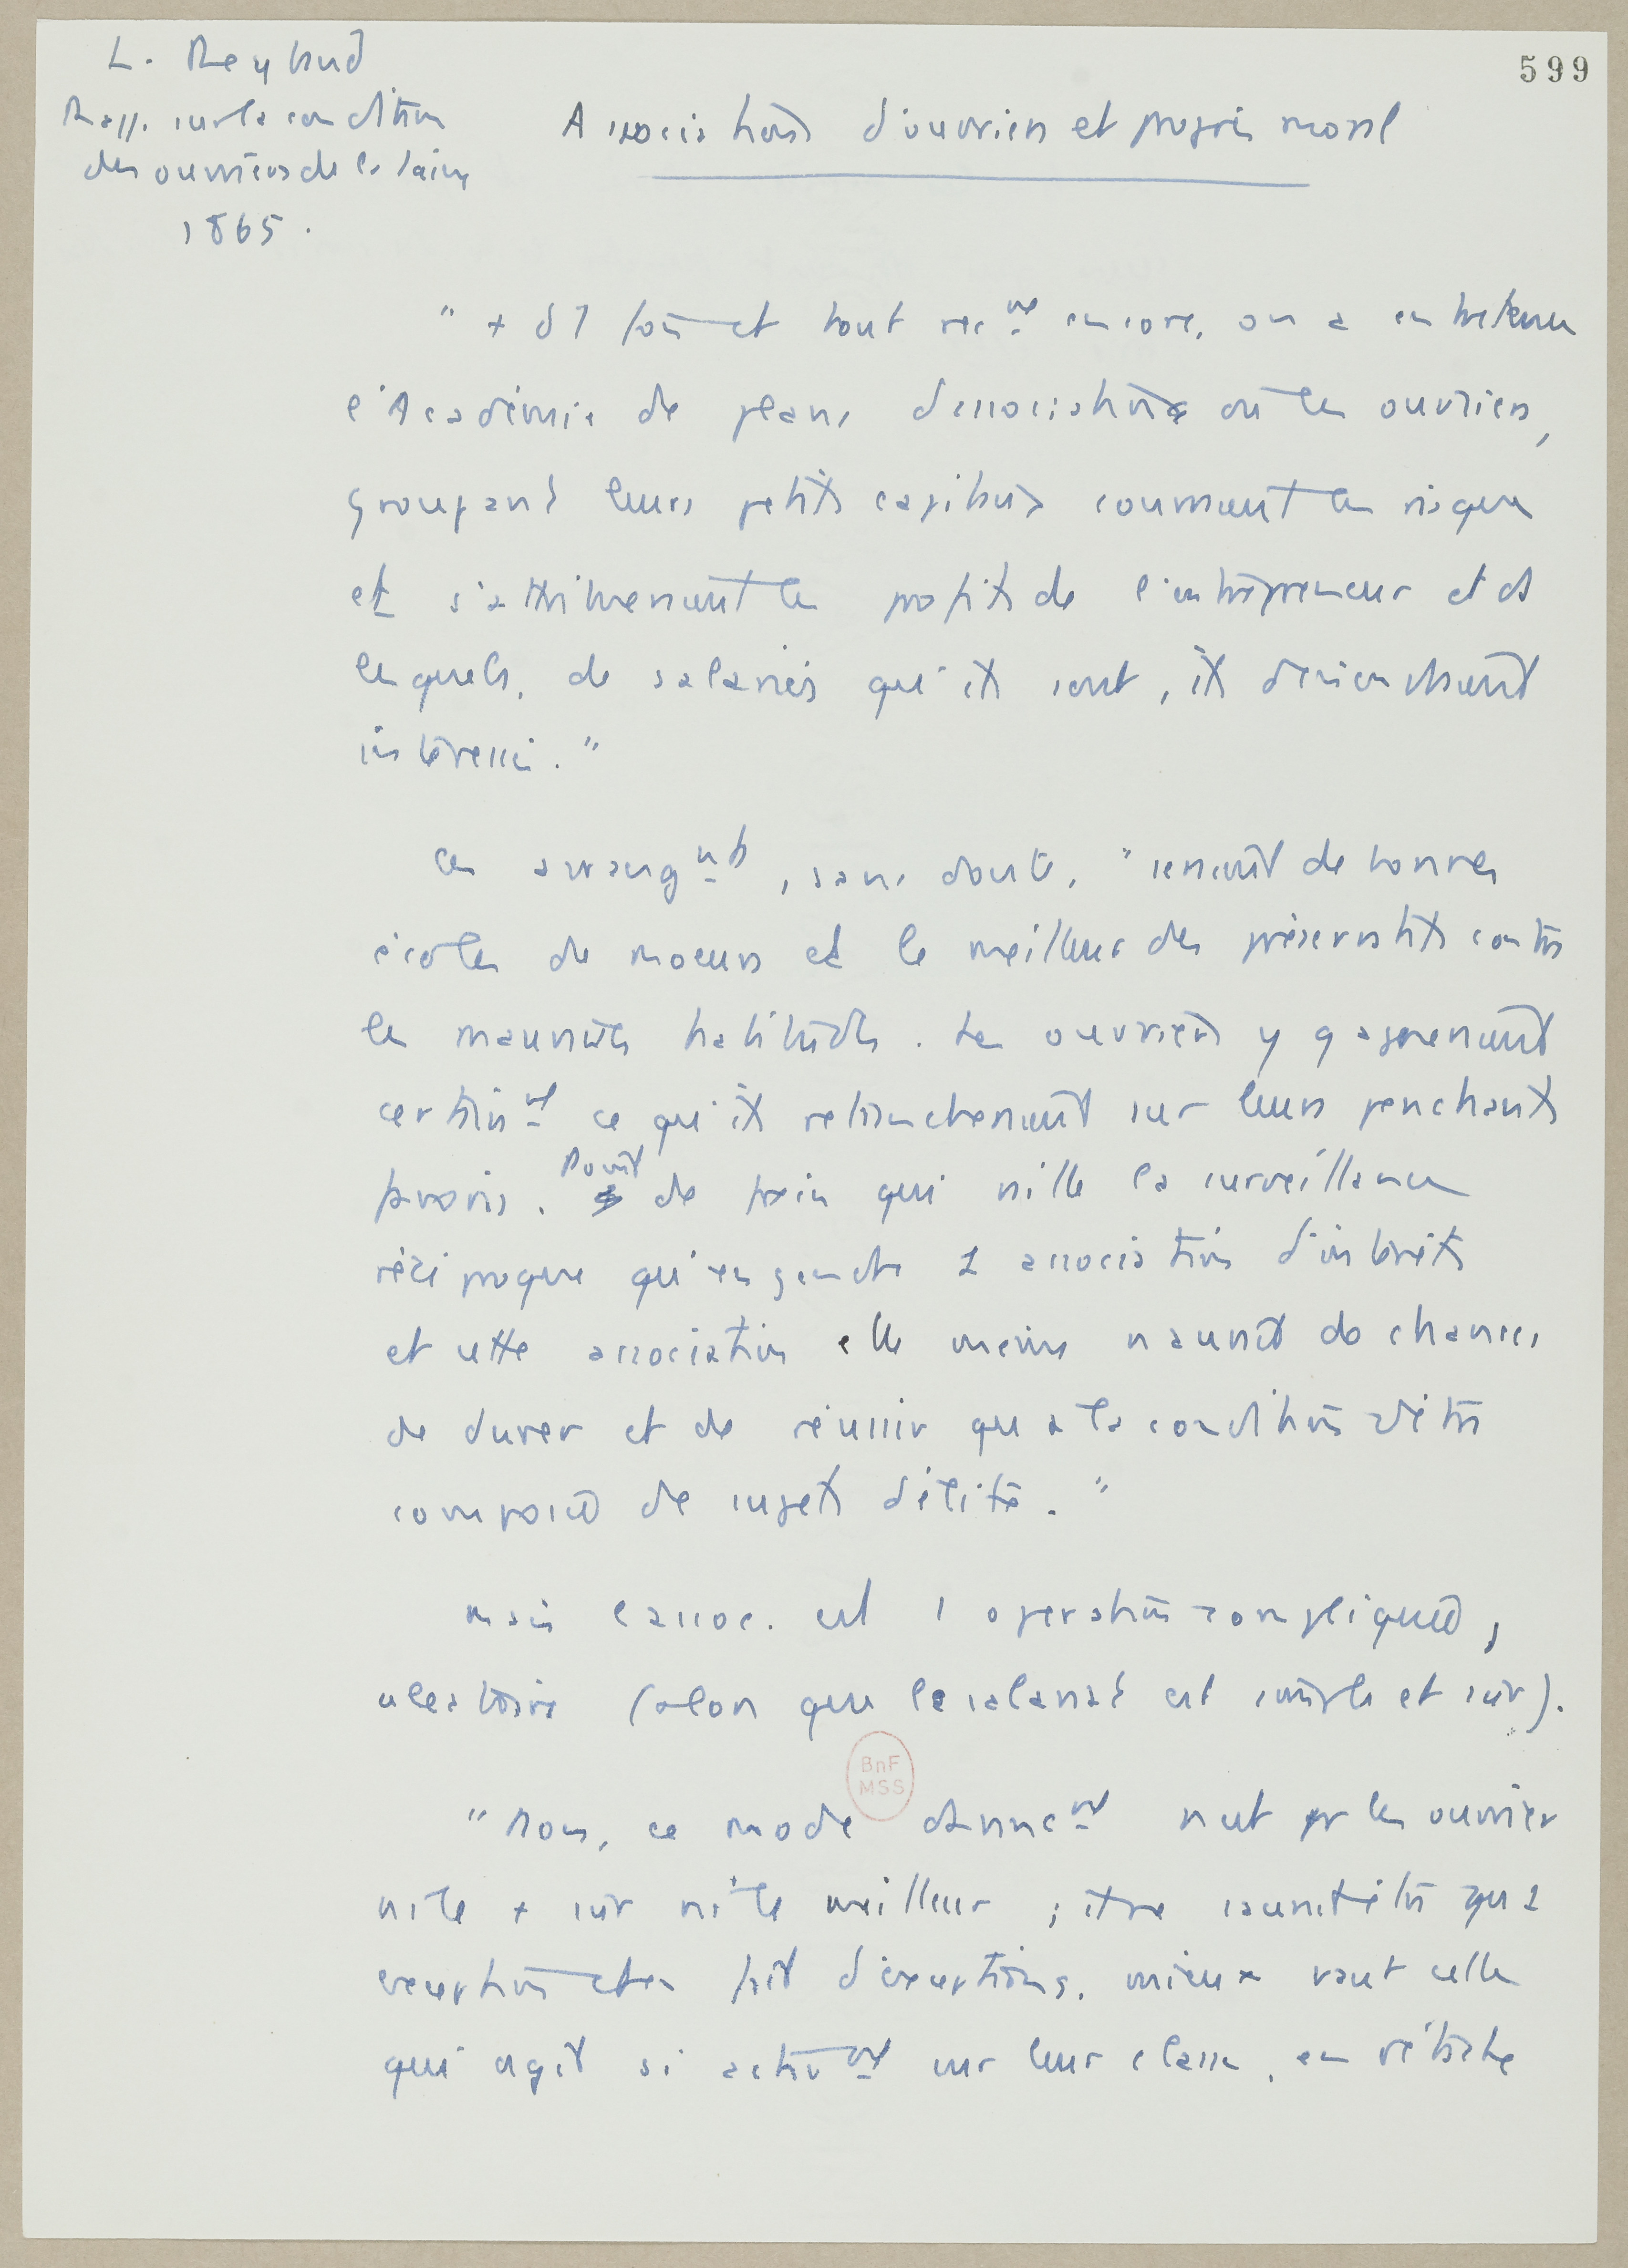 599
L. Reybaud
Rapp. sur la condition
des ouvriers de la laine
1865.
Associations d'ouvriers et progrès moral
" + d'1 fois et tout rec.nt encore, on a entretenu
l'Académie de plans d'associations où les ouvriers,
groupant leurs petits capitaux courraient les risques
et s'attribueraient les profits de l'entrepreneur et ds
lesquels, de salariés qu'ils sont, ils deviendraient
intéressés."
Ces arrangnts, sans doute, "seraient de bonnes
écoles de moeurs et le meilleur des préservatifs contre
les mauvaises habitudes. Les ouvriers y gagneraient
certainnt ce qu'ils retrancheraient sur leurs penchants
favoris. Point de frein qui vaille la surveillance
réciproque qu'engendre 1 association d'intérêts
et cette association elle même n'aurait de chances
de durer et de réussir qu'à la condition d'être
composée de sujets d'élite."
Mais l'assoc. est 1 opération compliquée,
aléatoire (alors que le salariat est simple et sûr).
BnF
MSS
"Non, ce mode d'avanct n'est pr les ouvriers
ni le + sûr ni le meilleur ; il ne saurait être qu'1
exception et en fait d'exceptions, mieux vaut celle
qui agit si activt sur leur classe, en détache